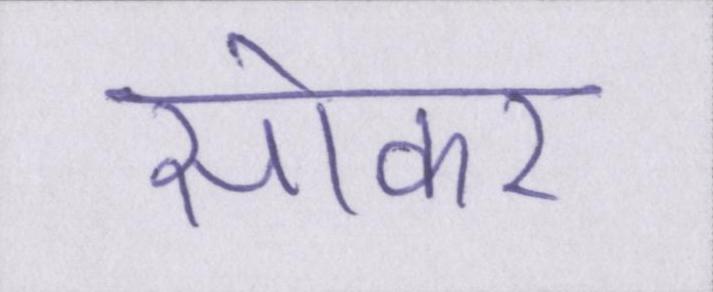 सोकर